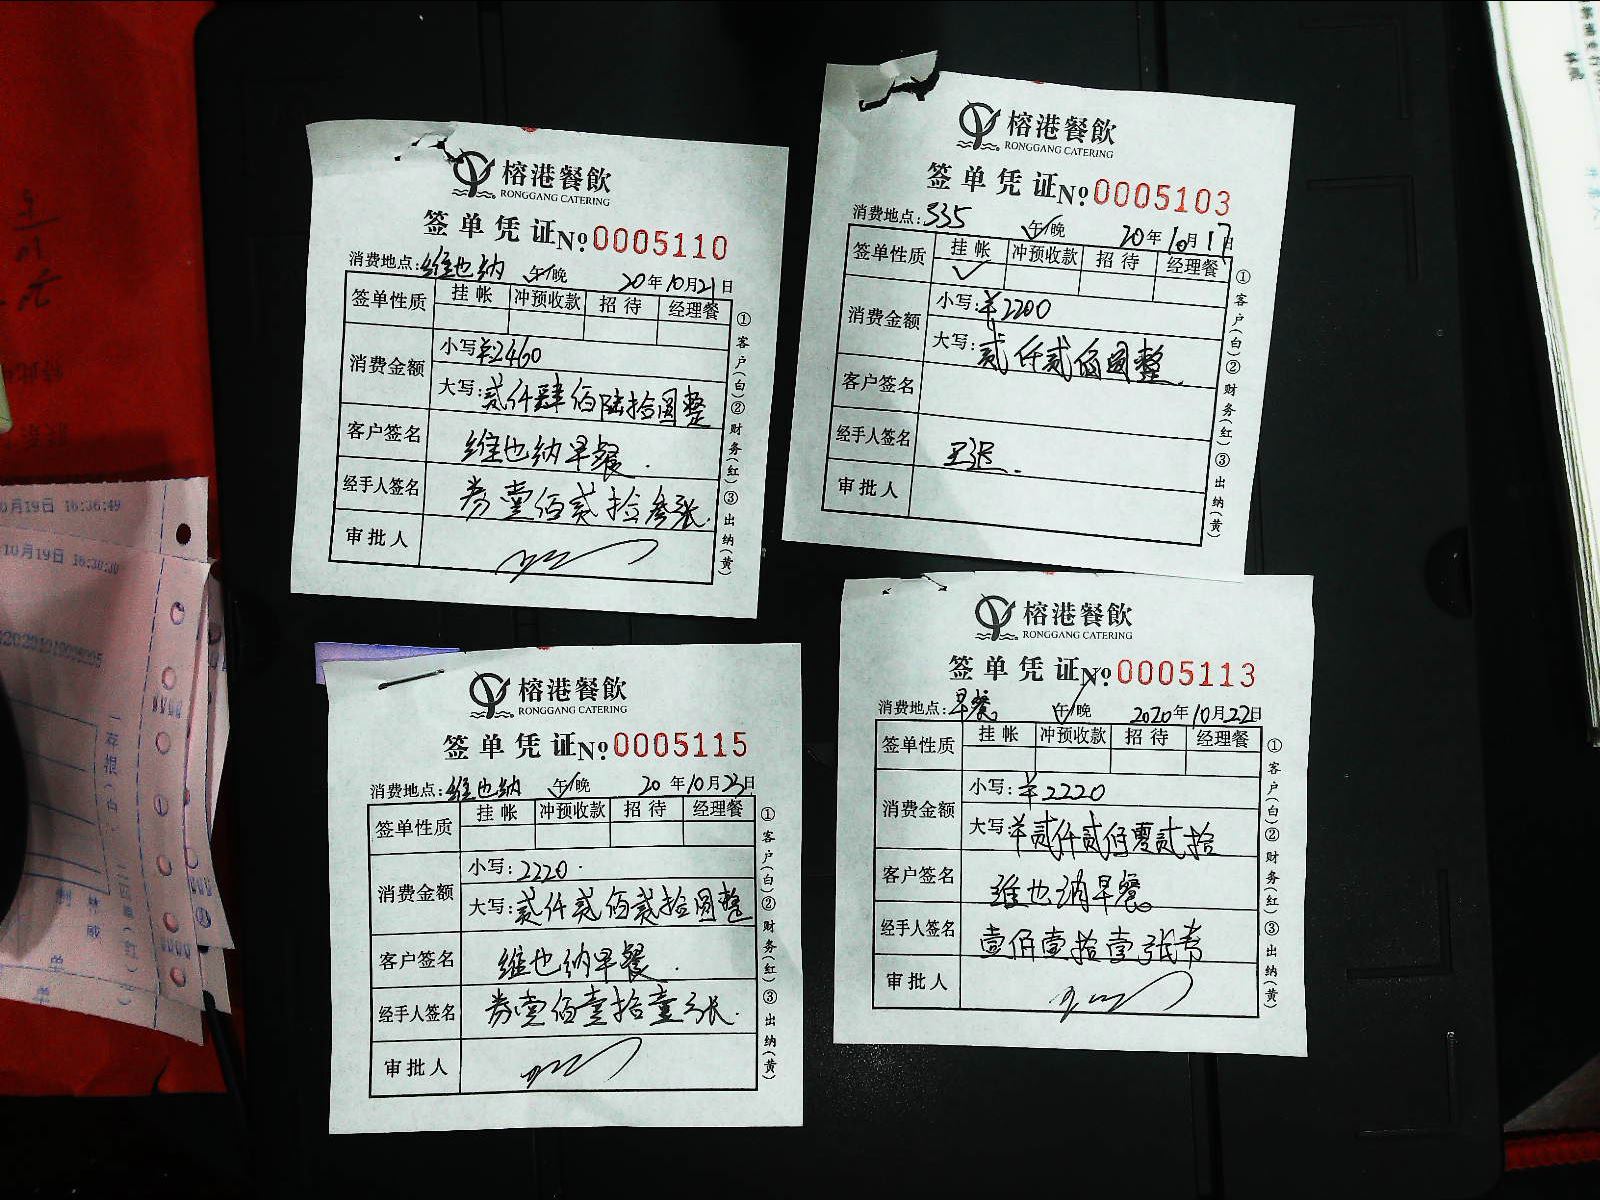 榕港餐飲
RONGGANG CATERING
签单凭证 №0005110
消费地点:维也纳 午/晚 20年10月21日
签单性质 挂帐 冲预收款 招待 经理餐
消费金额 小写:¥2460
大写:贰仟肆佰陆拾圆整
客户签名 维也纳早餐.
经手人签名 券壹佰贰拾叁张.
审批人
①客户(白)②财务(红)③出纳(黄)
榕港餐飲
RONGGANG CATERING
签单凭证 №0005103
消费地点:335 午/晚 20年10月17日
签单性质 挂帐 冲预收款 招待 经理餐
✓
消费金额 小写:¥2200
大写:贰仟贰佰圆整.
客户签名
经手人签名
审批人
①客户(白)②财务(红)③出纳(黄)
榕港餐飲
RONGGANG CATERING
签单凭证 №0005115
消费地点:维也纳 午/晚 20年10月23日
签单性质 挂帐 冲预收款 招待 经理餐
消费金额 小写:2220.
大写:贰仟贰佰贰拾圆整
客户签名 维也纳早餐.
经手人签名 券壹佰壹拾壹张.
审批人
①客户(白)②财务(红)③出纳(黄)
榕港餐飲
RONGGANG CATERING
签单凭证 №0005113
消费地点:早餐 午/晚 2020年10月22日
签单性质 挂帐 冲预收款 招待 经理餐
消费金额 小写:¥2220
大写:¥贰仟贰佰零贰拾
客户签名 维也纳早餐。
经手人签名 壹佰壹拾壹张券
审批人
①客户(白)②财务(红)③出纳(黄)
0月19日 16:36:49
10月19日 16:30:30